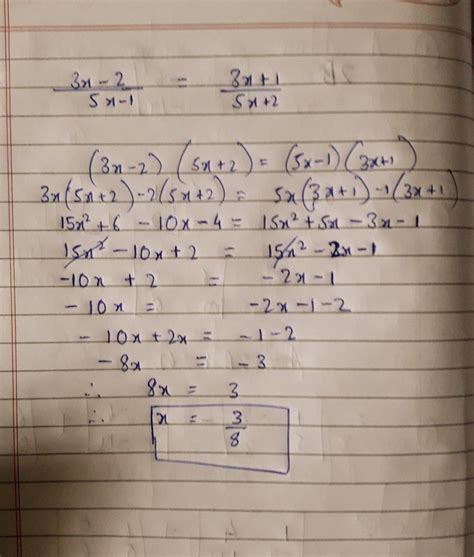 3x-2 / 5x-1 = 3x+1 / 5x+2
(3x-2) (5x+2) = (5x-1) (3x+1)
3x(5x+2) -2(5x+2) = 5x(3x+1) -1(3x+1)
15x² + 6 - 10x - 4 = 15x² + 5x - 3x - 1
15x² - 10x + 2 = 15x² - 2x - 1
-10x + 2 = -2x - 1
-10x = -2x - 1 - 2
-10x + 2x = -1 - 2
-8x = -3
∴ 8x = 3
∴ x = 3/8